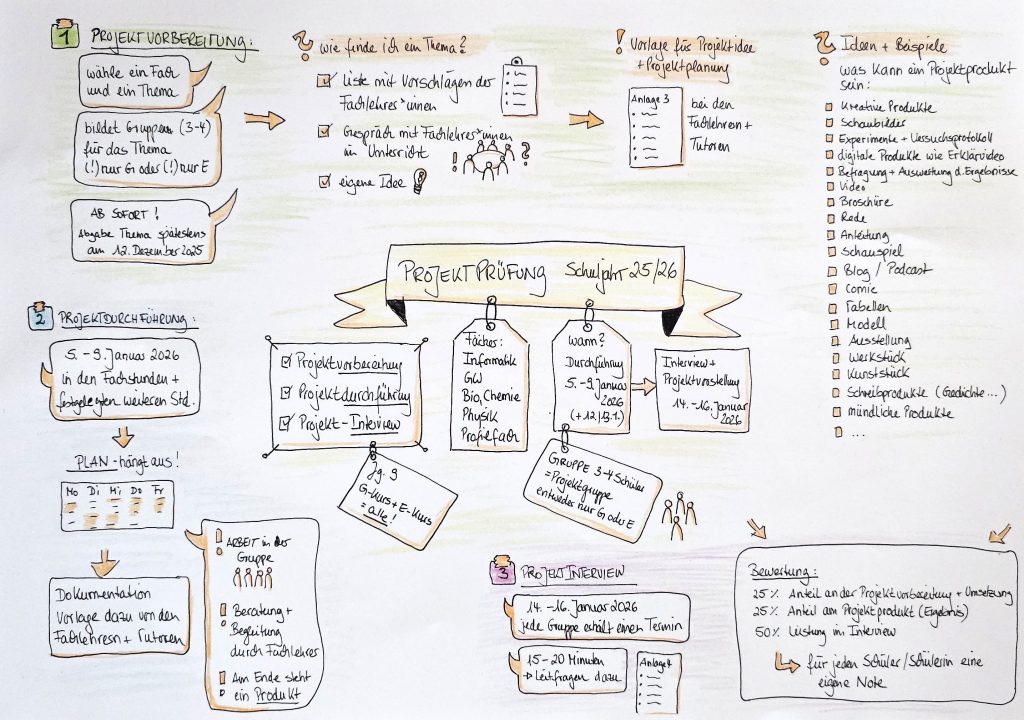 1 PROJEKTVORBEREITUNG:
wähle ein Fach
und ein Thema
bildet Gruppen (3-4)
für das Thema
(!) nur G oder (!) nur E
AB SOFORT!
Abgabe Thema spätestens
am 12. Dezember 2025
? wie finde ich ein Thema?
Liste mit Vorschlägen der
Fachlehrer*innen
Gespräch mit Fachlehrer*innen
im Unterricht
! ?
eigene Idee
! Vorlage für Projektidee
+ Projektplanung
Anlage 3
bei den
Fachlehrern +
Tutoren
? Ideen + Beispiele
was kann ein Projektprodukt
sein:
Kreative Produkte
Schaubilder
Experimente + Versuchsprotokoll
digitale Produkte wie Erklärvideo
Befragung + Auswertung d. Ergebnisse
Video
Broschüre
Rede
Anleitung
Schauspiel
Blog / Podcast
Comic
Tabellen
Modell
Ausstellung
Werkstück
Kunststück
Schreibprodukte (Gedichte...)
mündliche Produkte
...
PROJEKTPRÜFUNG Schuljahr 25/26
Projektvorbereitung
Projektdurchführung
Projekt-Interview
Jg. 9
G-Kurs + E-Kurs
= alle!
Fächer:
Informatik
GW
Bio, Chemie
Physik
Profilfach
wann?
Durchführung
5.-9. Januar
2026
(+ 12./13.1.)
Interview +
Projektvorstellung
14.-16. Januar
2026
GRUPPE 3-4 Schüler
= Projektgruppe
entweder nur G oder E
2 PROJEKTDURCHFÜHRUNG:
5.-9. Januar 2026
in den Fachstunden +
festgelegten weiteren Std.
PLAN - hängt aus!
Mo Di Mi Do Fr
Dokumentation
Vorlage dazu von den
Fachlehrern + Tutoren
! ARBEIT in der
Gruppe
! Beratung +
Begleitung
durch Fachlehrer
! Am Ende steht
ein Produkt
3 PROJEKTINTERVIEW
14.-16. Januar 2026
jede Gruppe erhält einen Termin
15-20 Minuten
→ Leitfragen dazu
Anlage 4
Bewertung:
25% Anteil an der Projektvorbereitung + Umsetzung
25% Anteil am Projektprodukt (Ergebnis)
50% Leistung im Interview
für jeden Schüler/Schülerin eine
eigene Note